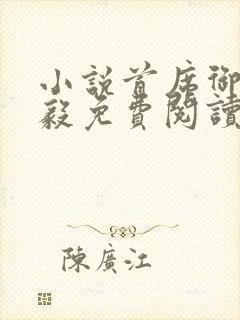 小說首席御
毅免費閱讀
陳廣江